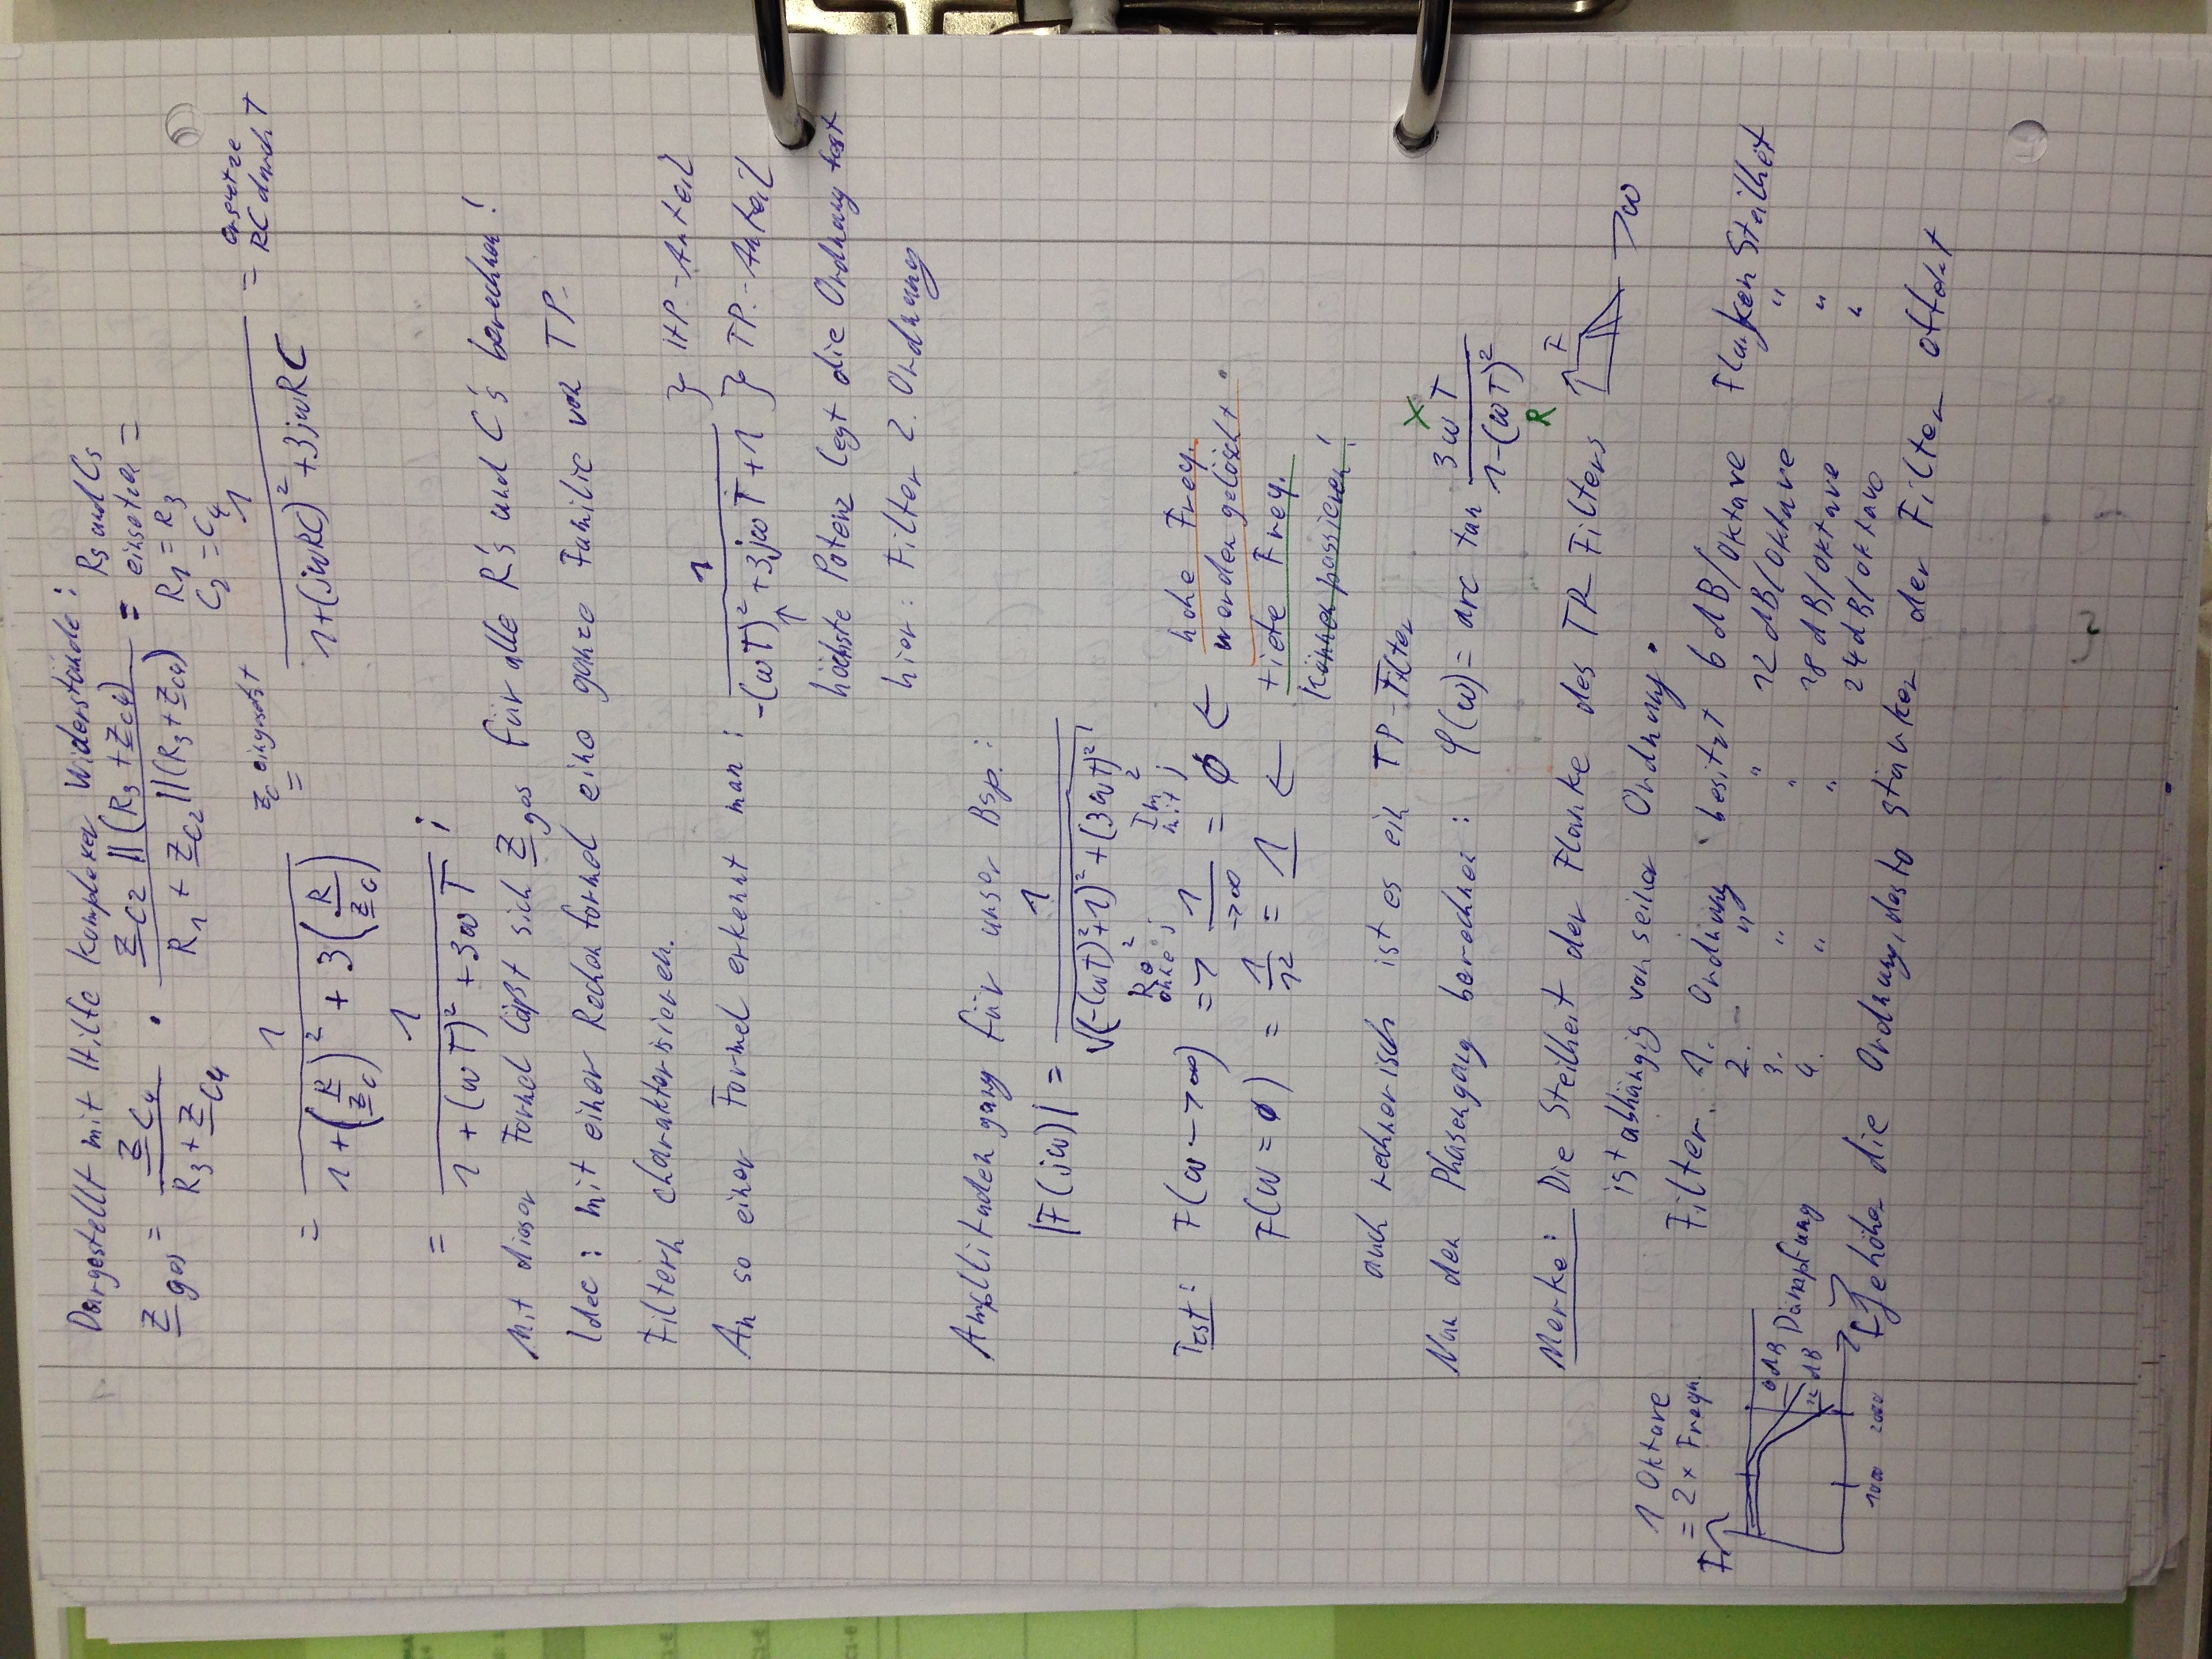 Dargestellt mit Hilfe komplexer Widerstände:
Z_ges = Z_C4 / (R_3 + Z_C4) · (Z_C2 || (R_3 + Z_C4)) / (R_1 + Z_C2 || (R_3 + Z_C4)) = Rs und Cs einsetzen = R_1 = R_3 C_2 = C_4
= 1 / (1 + (R/Z_C)² + 3(R/Z_C)) Z_C eingesetzt = 1 / (1+(jωRC)² + 3jωRC) = ersetze RC durch T
= 1 / (1 + (ωT)² + 3ωT) ;
Mit dieser Formel läßt sich Z_ges für alle R's und C's berechnen!
Idee: mit einer Rechenformel eine ganze Familie von TP-
Filtern charakterisieren.
An so einer Formel erkennt man: 1 / (-(ωT)² + 3jωT + 1) } HP.-Anteil } TP.-Anteil
↑
höchste Potenz legt die Ordnung fest
hier: Filter 2. Ordnung
Ampllitudengang für unser Bsp.:
|F(jω)| = 1 / √((-(ωT)²+1)² + (3ωT)²)
Re² ohne j Im² mit j
Test: F(ω->∞) => 1/->∞ = ∅ ← hohe Freq.
werden gelöscht.
F(ω = ∅) = 1/1² = 1 ← tiefe Freq.
können passieren!
auch rechnerisch ist es ein TP-Filter
Nun den Phasengang berechnen: φ(ω) = arc tan 3ωT / (1-(ωT)²)
X
R
Merke: Die Steilheit der Flanke des TP-Filters
ist abhängig von seiner Ordnung.
F
->ω
1 Oktave
= 2x Freqn.
F
6 dB
12 dB
Dämpfung
1000 2000 f
Filter 1. Ordnung besitzt 6 dB/Oktave Flanken Steilheit
2. - " " 12 dB/Oktave "
3. " " 18 dB/Oktave "
4. " " 24 dB/Oktave "
Je höher die Ordnung, desto stärker der Filter effekt